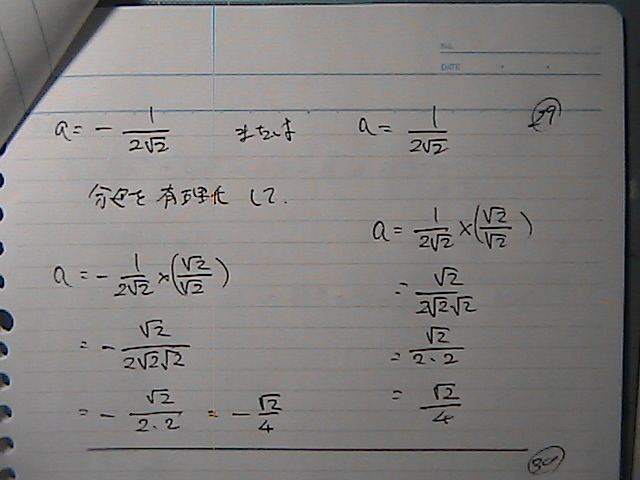 No.
DATE
a = - 1/(2√2) または a = 1/(2√2) 29
分母を有理化して.
a = - 1/(2√2) × (√2/√2)
= - √2/(2√2√2)
= - √2/(2・2) = - √2/4
a = 1/(2√2) × (√2/√2)
= √2/(2√2√2)
= √2/(2・2)
= √2/4